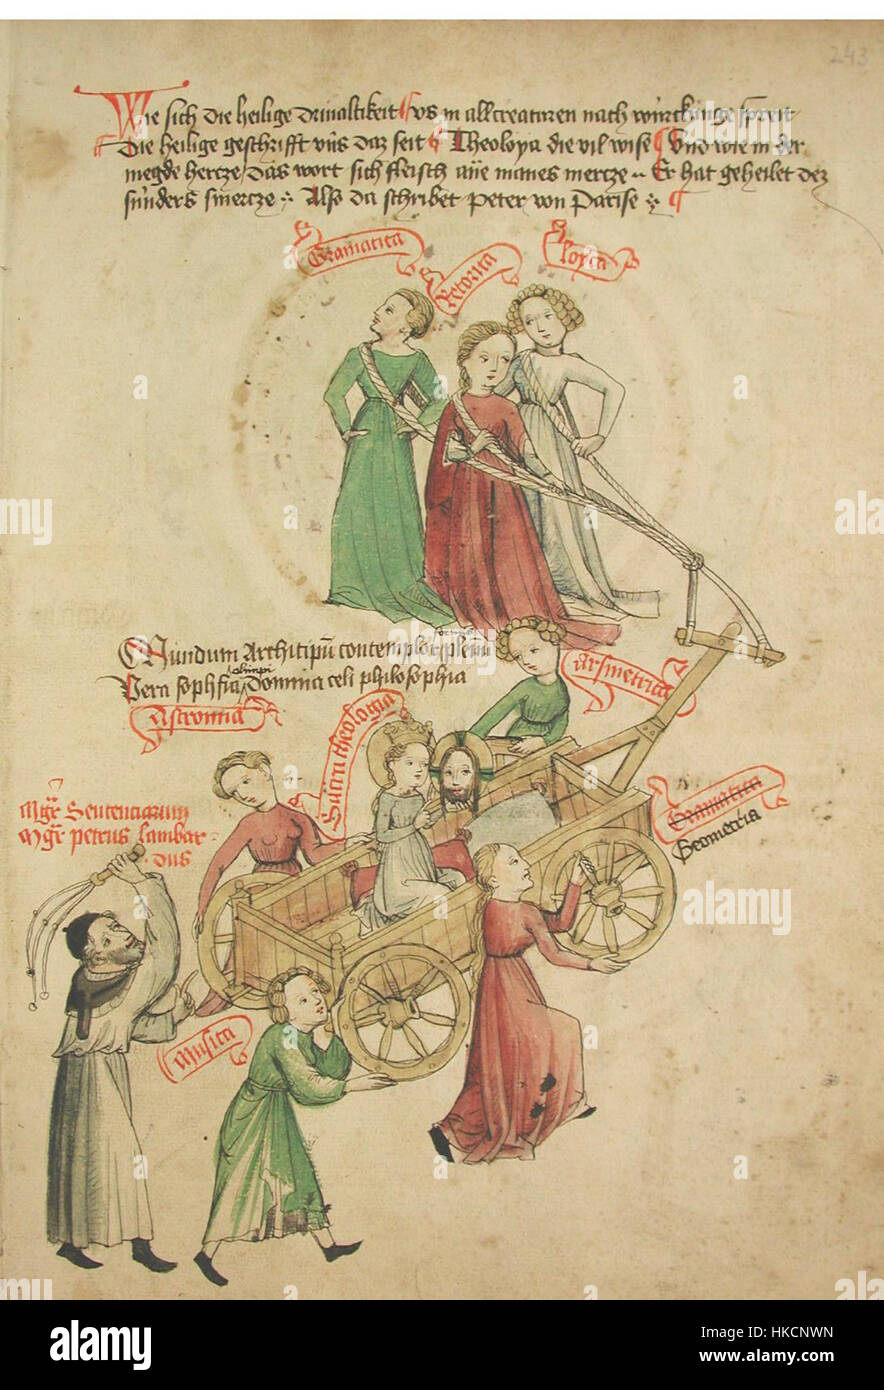 243
Wie sich die heilige drivaltikeit Vs in all creaturen nach würckunge spreit
Die heilige geschrifft vns daz seit Theoloya die vil wise Vnd wie in der
megde hercze das wort sich fleisch ane manes mercze Er hat geheilet dez
sünders smercze Also da schribet Peter von Parise
Gramatica
Retorica
Loyca
Mundum Architipum contemplor
Vera soph domina celi philosophia
Arsmetrica
Astronomia
Sacra theologia
Gramatica
Geometria
Mgr Sentenciarum
Mgr petrus lambar
dus
Musica
alamy
Image ID: HKCNWN
www.alamy.com